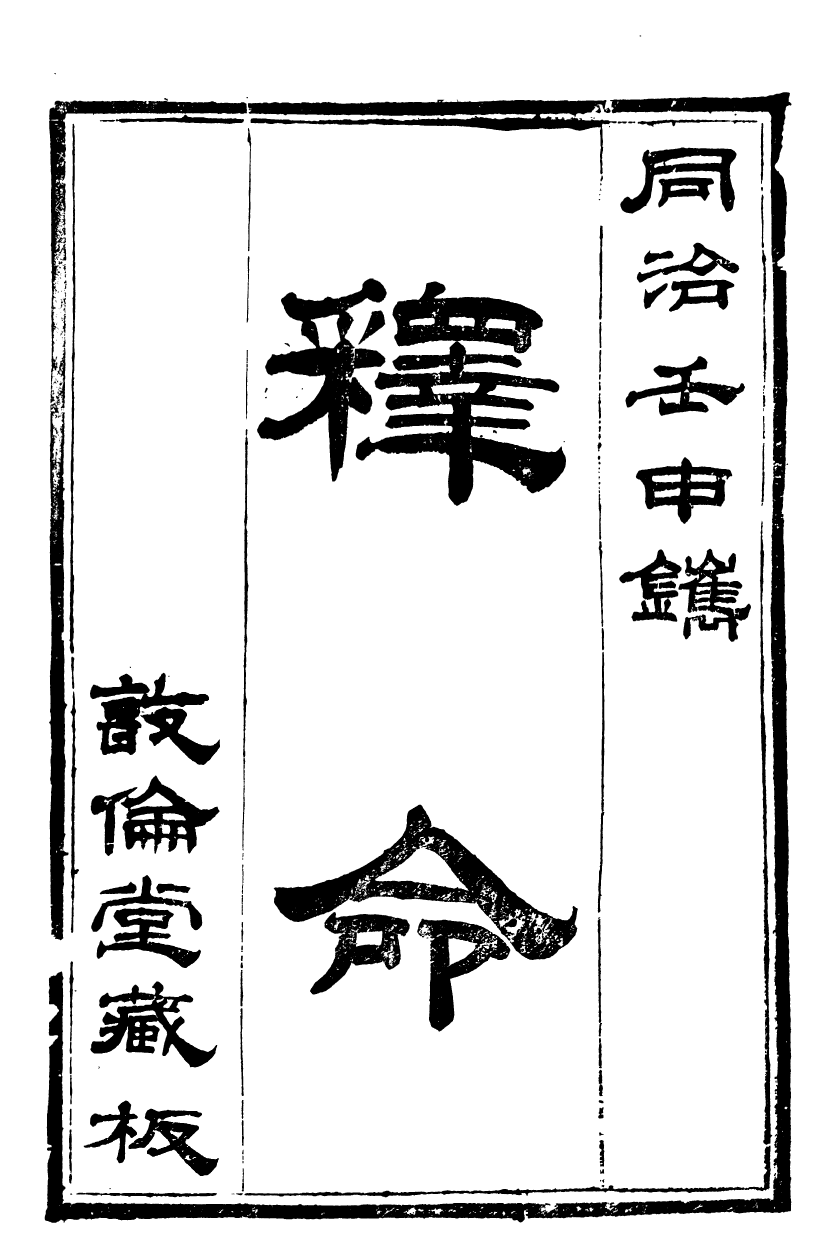 同治壬申鐫
釋命
敦倫堂藏板